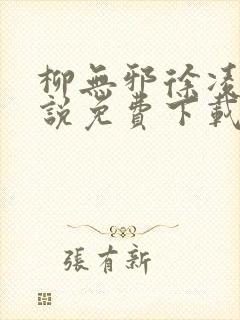 柳無邪徐凌
說免費下載
張有新